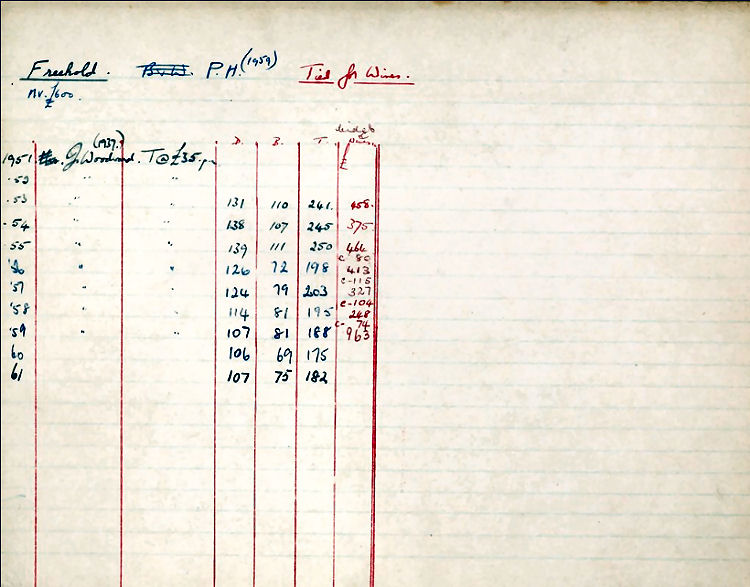 Freehold. B.&W. P.H. (1959) Tied for Wines.
NV. £600.
D. B. T.
£
1951 J. Woodward. (1937.) T @ £35. pa
.52 " "
.53 " " 131 110 241. 458.
.54 " " 138 107 245 375
.55 " " 139 111 250 464
c 80
'56 " " 126 72 198 413
c-115
'57 " " 124 79 203 327
c-104
'58 " " 114 81 195 248
c- 74
'59 " " 107 81 188 963
60 106 69 175
61 107 75 182